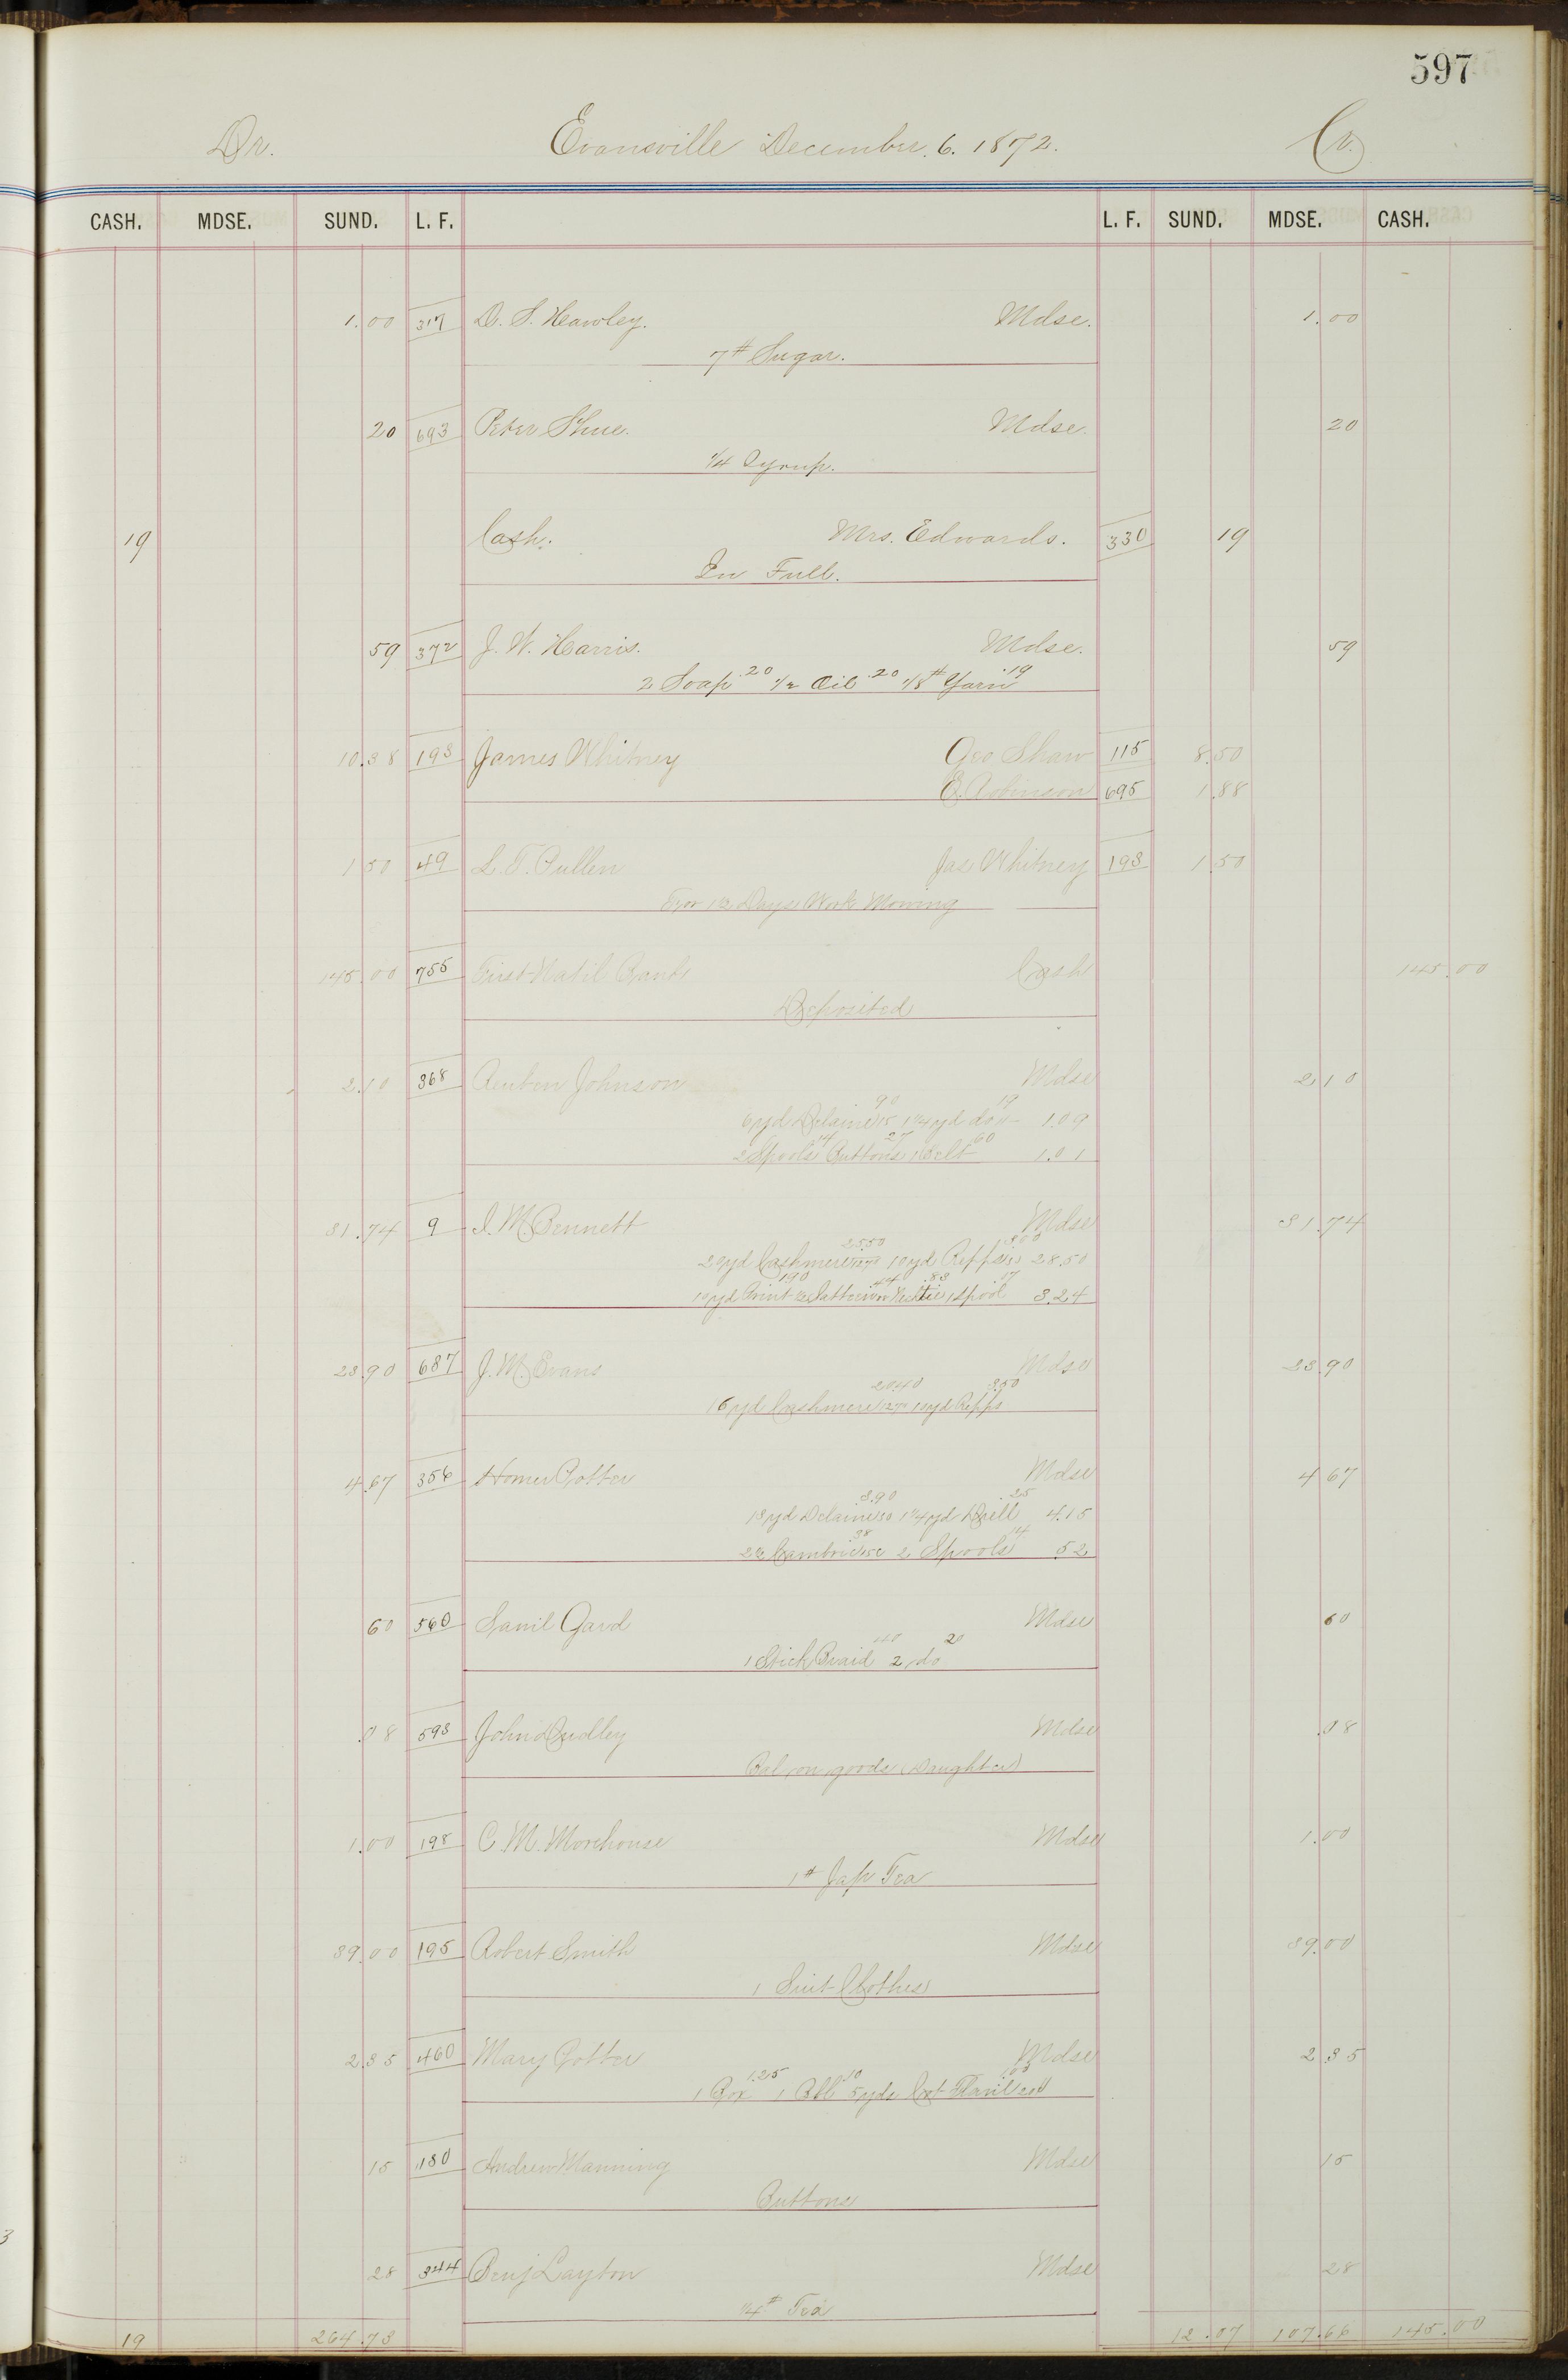 597
Dr. Evansville December. 6. 1872. Cr.
CASH. MDSE. SUND. L. F. L. F. SUND. MDSE. CASH.
1.00 317 D. S. Hawley. Mdse. 1.00
7# Sugar.
20 693 Peter Shue. Mdse. 20
1/4 Syrup.
19 Cash. Mrs. Edwards. 330 19
In Full.
59 372 J. W. Harris. Mdse. 59
2 Soap .20 1/2 Oil .20 1/8# Yarn .19
10.38 193 James Whitney Geo Shaw 115 8.50
E. Robinson 695 1.88
1.50 49 L. T. Pullen Jas Whitney 193 1.50
For 1 1/2 Days Work Mowing
145.00 755 First Nat'l Bank Cash 145.00
Deposited
2.10 368 Reuben Johnson Mdse 2.10
6 yd Delaine 15 90 1 1/4 yd do 15 19 1.09
2 Spools 14 Buttons 27 1 Belt 60 1.01
31.74 9 I. M. Bennett Mdse 31.74
20 yd Cashmere 127½ 25.50 10 yd Repps 30 3.00 28.50
10 yd Print 1.90 Necktie .83 1 Spool .17 3.24
23.90 687 J. M. Evans Mdse 23.90
16 yd Cashmere 127½ 20.40 10 yd Repps 3.50
4.67 356 Homer Potter Mdse 4.67
13 yd Delaine 30 3.90 1 1/4 yd Drill .25 4.15
2 1/2 Cambric 15c 38 2 Spools 14 52
60 560 Sam'l Gard Mdse 60
1 Stick Braid 40 2 do 20
.08 593 John Dudley Mdse .08
Bal on goods (Daughter)
1.00 198 C. M. Morehouse Mdse 1.00
1# Jap Tea
39.00 195 Robert Smith Mdse 39.00
1 Suit Clothes
2.35 460 Mary Potter Mdse 2.35
1 Box 1.25 1 Bbl .10 5 yds Cot Flanil 20 1.00
15 180 Andrew Manning Mdse 15
Buttons
28 344 Benj Layton Mdse 28
1/4# Tea
19 264.73 12.07 107.66 145.00